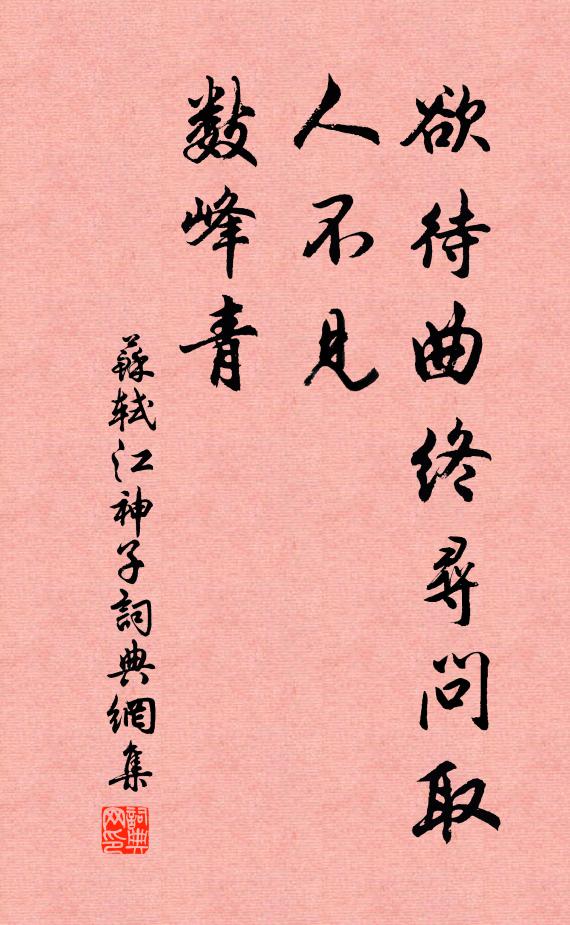 欲待曲終尋問取
人不見
数峰青
蘇軾江神子詞典網集
詞典
网印